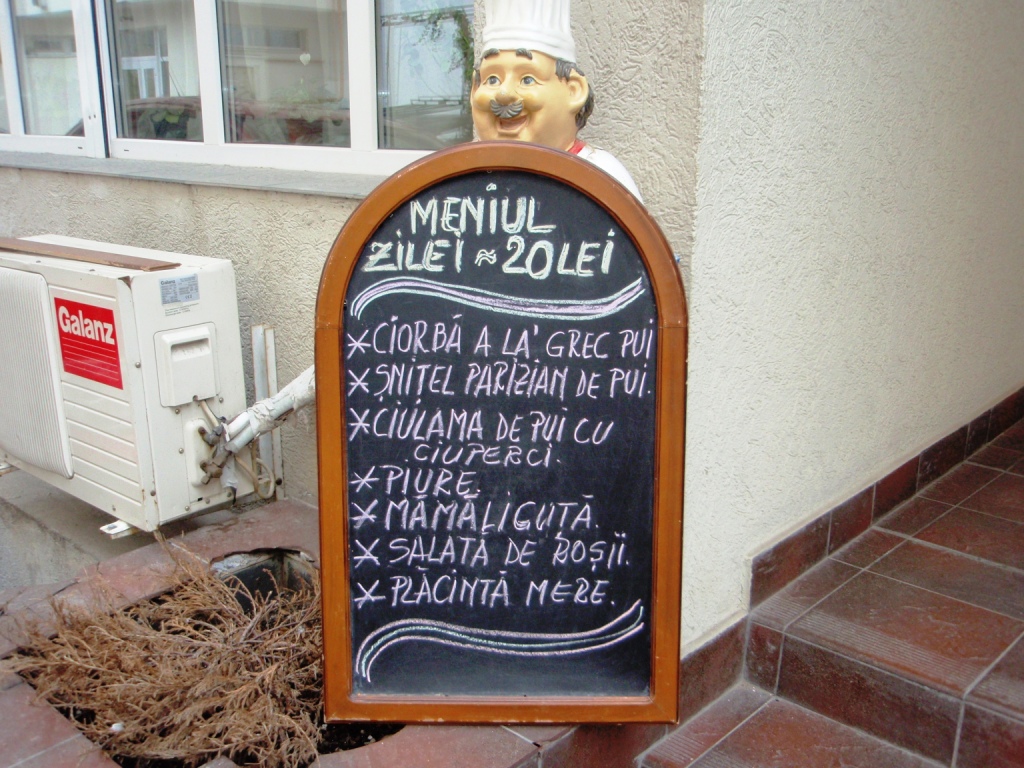 MENIUL
ZILEI ≈ 20 LEI
*CIORBĂ A LA' GREC PUI
*ȘNIȚEL PARIZIAN DE PUI.
*CIULAMA DE PUI CU
CIUPERCI.
*PIURE.
*MĂMĂLIGUȚĂ.
*SALATĂ DE ROȘII.
*PLĂCINTĂ MERE.
Galanz